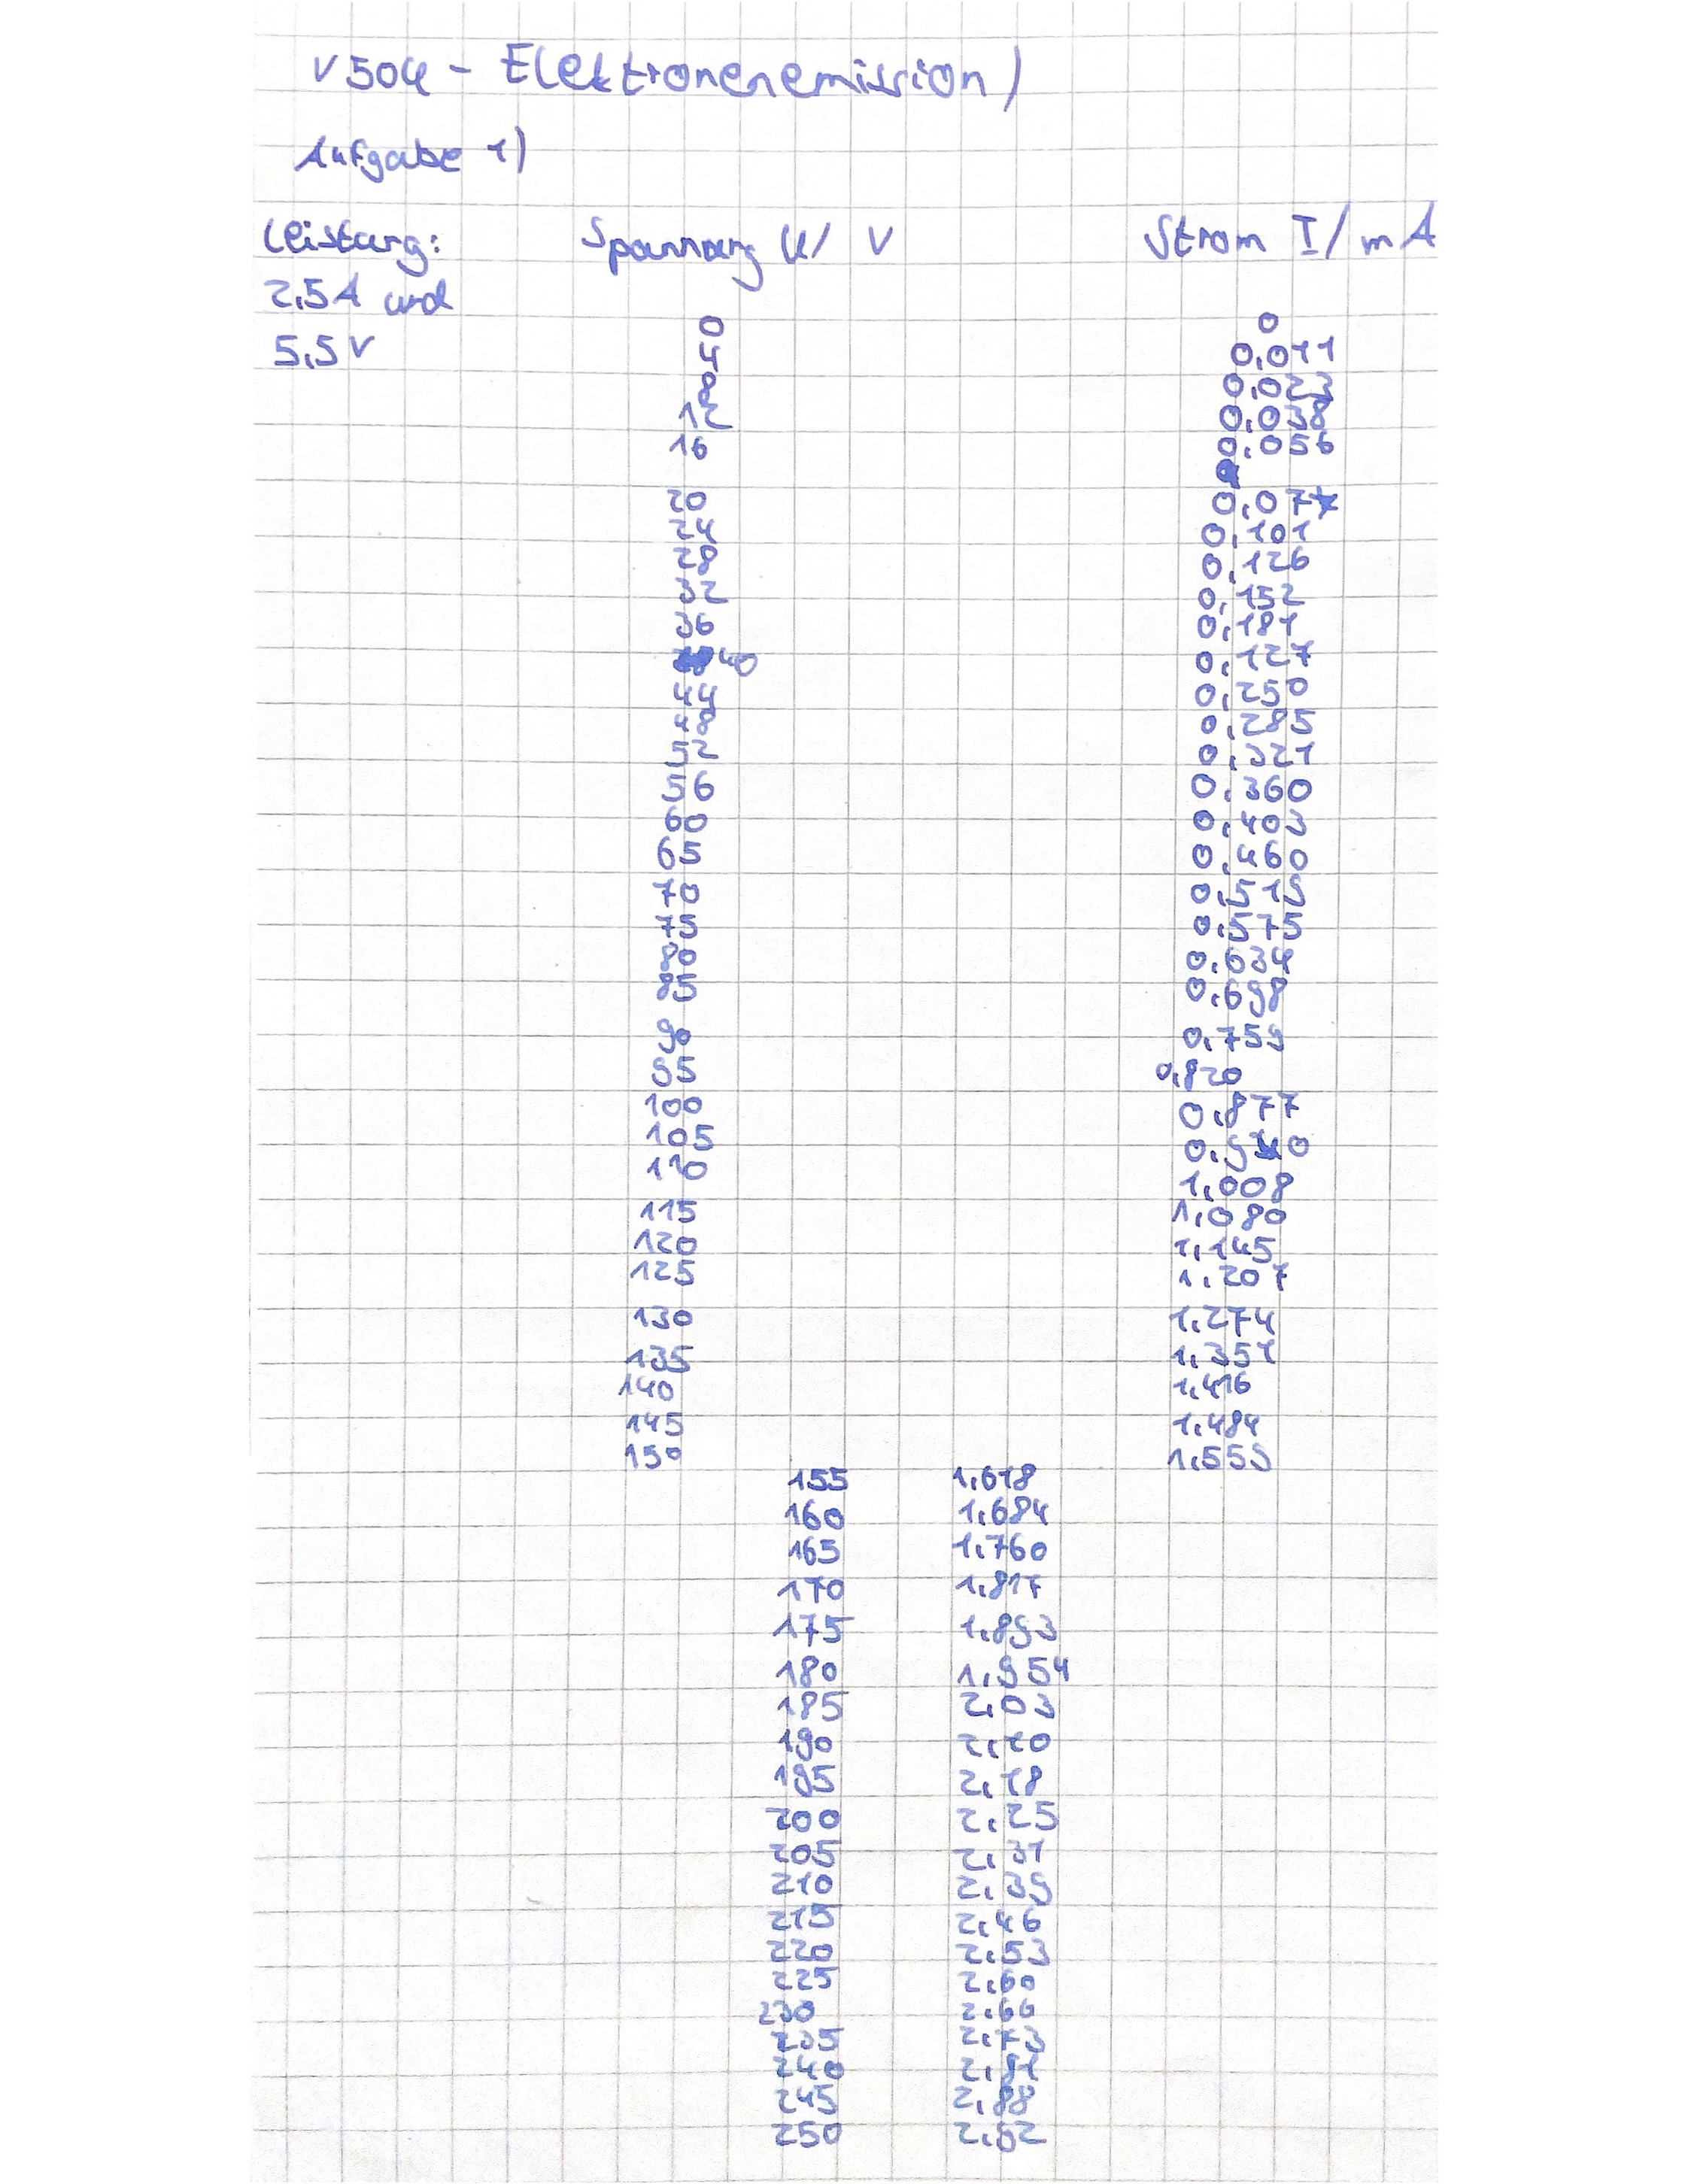 V504 - Elektronenemission)
Aufgabe 1)
Leistung: Spannung U/ V Strom I/ mA
2,5A und
5,5V
0 0
4 0,011
8 0,023
12 0,038
16 0,056
20
24 0,101
28 0,126
32 0,152
36 0,181
40 0,127
44 0,250
48 0,285
52 0,321
56 0,360
60 0,403
65 0,460
70 0,515
75 0,575
80 0,634
85 0,698
90 0,759
95 0,820
100 0,877
105
110 1,008
115 1,080
120 1,145
125 1,207
130 1,274
135 1,351
140 1,416
145 1,484
150 1,559
155 1,618
160 1,684
165 1,760
170 1,817
175 1,893
180 1,954
185 2,03
190 2,10
195 2,18
200 2,25
205 2,31
210 2,39
215 2,46
220 2,53
225 2,60
230 2,66
235 2,73
240
245 2,88
250 2,92